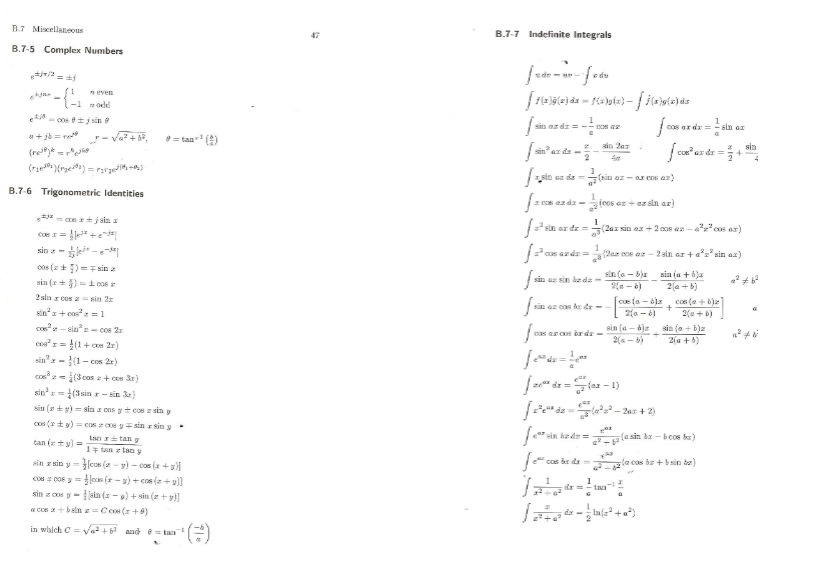 B.7 Miscellaneous
47
B.7-5 Complex Numbers
e^{±jπ/2} = ±j
e^{±jnπ} = { 1 n even
−1 n odd
e^{±jθ} = cos θ ± j sin θ
a + jb = re^{jθ} r = √(a² + b²), θ = tan⁻¹(b/a)
(re^{jθ})^k = r^k e^{jkθ}
(r₁e^{jθ₁})(r₂e^{jθ₂}) = r₁r₂e^{j(θ₁+θ₂)}
B.7-6 Trigonometric Identities
e^{±jx} = cos x ± j sin x
cos x = ½[e^{jx} + e^{−jx}]
sin x = 1/2j [e^{jx} − e^{−jx}]
cos (x ± π/2) = ∓ sin x
sin (x ± π/2) = ± cos x
2 sin x cos x = sin 2x
sin² x + cos² x = 1
cos² x − sin² x = cos 2x
cos² x = ½(1 + cos 2x)
sin² x = ½(1 − cos 2x)
cos³ x = ¼(3 cos x + cos 3x)
sin³ x = ¼(3 sin x − sin 3x)
sin (x ± y) = sin x cos y ± cos x sin y
cos (x ± y) = cos x cos y ∓ sin x sin y
tan (x ± y) = (tan x ± tan y)/(1 ∓ tan x tan y)
sin x sin y = ½[cos (x − y) − cos (x + y)]
cos x cos y = ½[cos (x − y) + cos (x + y)]
sin x cos y = ½[sin (x − y) + sin (x + y)]
a cos x + b sin x = C cos (x + θ)
in which C = √(a² + b²) and θ = tan⁻¹(−b/a)
B.7-7 Indefinite Integrals
∫ u dv = uv − ∫ v du
∫ f(x)ġ(x) dx = f(x)g(x) − ∫ ḟ(x)g(x) dx
∫ sin ax dx = −1/a cos ax ∫ cos ax dx = 1/a sin ax
∫ sin² ax dx = x/2 − sin 2ax/4a ∫ cos² ax dx = x/2 + sin /4
∫ x sin ax dx = 1/a² (sin ax − ax cos ax)
∫ x cos ax dx = 1/a² (cos ax + ax sin ax)
∫ x² sin ax dx = 1/a³ (2ax sin ax + 2 cos ax − a²x² cos ax)
∫ x² cos ax dx = 1/a³ (2ax cos ax − 2 sin ax + a²x² sin ax)
∫ sin ax sin bx dx = sin (a − b)x/2(a − b) − sin (a + b)x/2(a + b) a² ≠ b²
∫ sin ax cos bx dx = −[cos (a − b)x/2(a − b) + cos (a + b)x/2(a + b)] a
∫ cos ax cos bx dx = sin (a − b)x/2(a − b) + sin (a + b)x/2(a + b) a² ≠ b
∫ e^{ax} dx = 1/a e^{ax}
∫ xe^{ax} dx = e^{ax}/a² (ax − 1)
∫ x²e^{ax} dx = e^{ax}/a³ (a²x² − 2ax + 2)
∫ e^{ax} sin bx dx = e^{ax}/(a² + b²) (a sin bx − b cos bx)
∫ e^{ax} cos bx dx = e^{ax}/(a² + b²) (a cos bx + b sin bx)
∫ 1/(x² + a²) dx = 1/a tan⁻¹ x/a
∫ x/(x² + a²) dx = ½ ln(x² + a²)